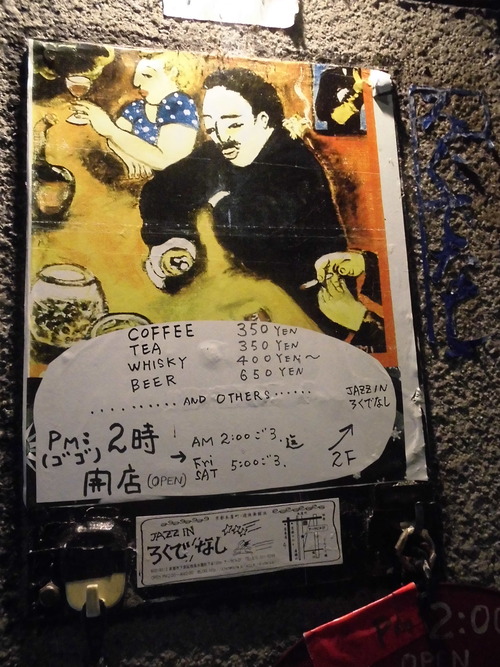 COFFEE 350 YEN
TEA 350 YEN
WHISKY 400 YEN〜
BEER 650 YEN
..........AND OTHERS......
JAZZ IN
ろくでなし
2F
PM:
(ゴゴ)
2時
開店(OPEN)
→
AM 2:00ごろ.迄
Fri
SAT 5:00ごろ.
JAZZ IN
ろくでなし
PM 2:00
OPEN